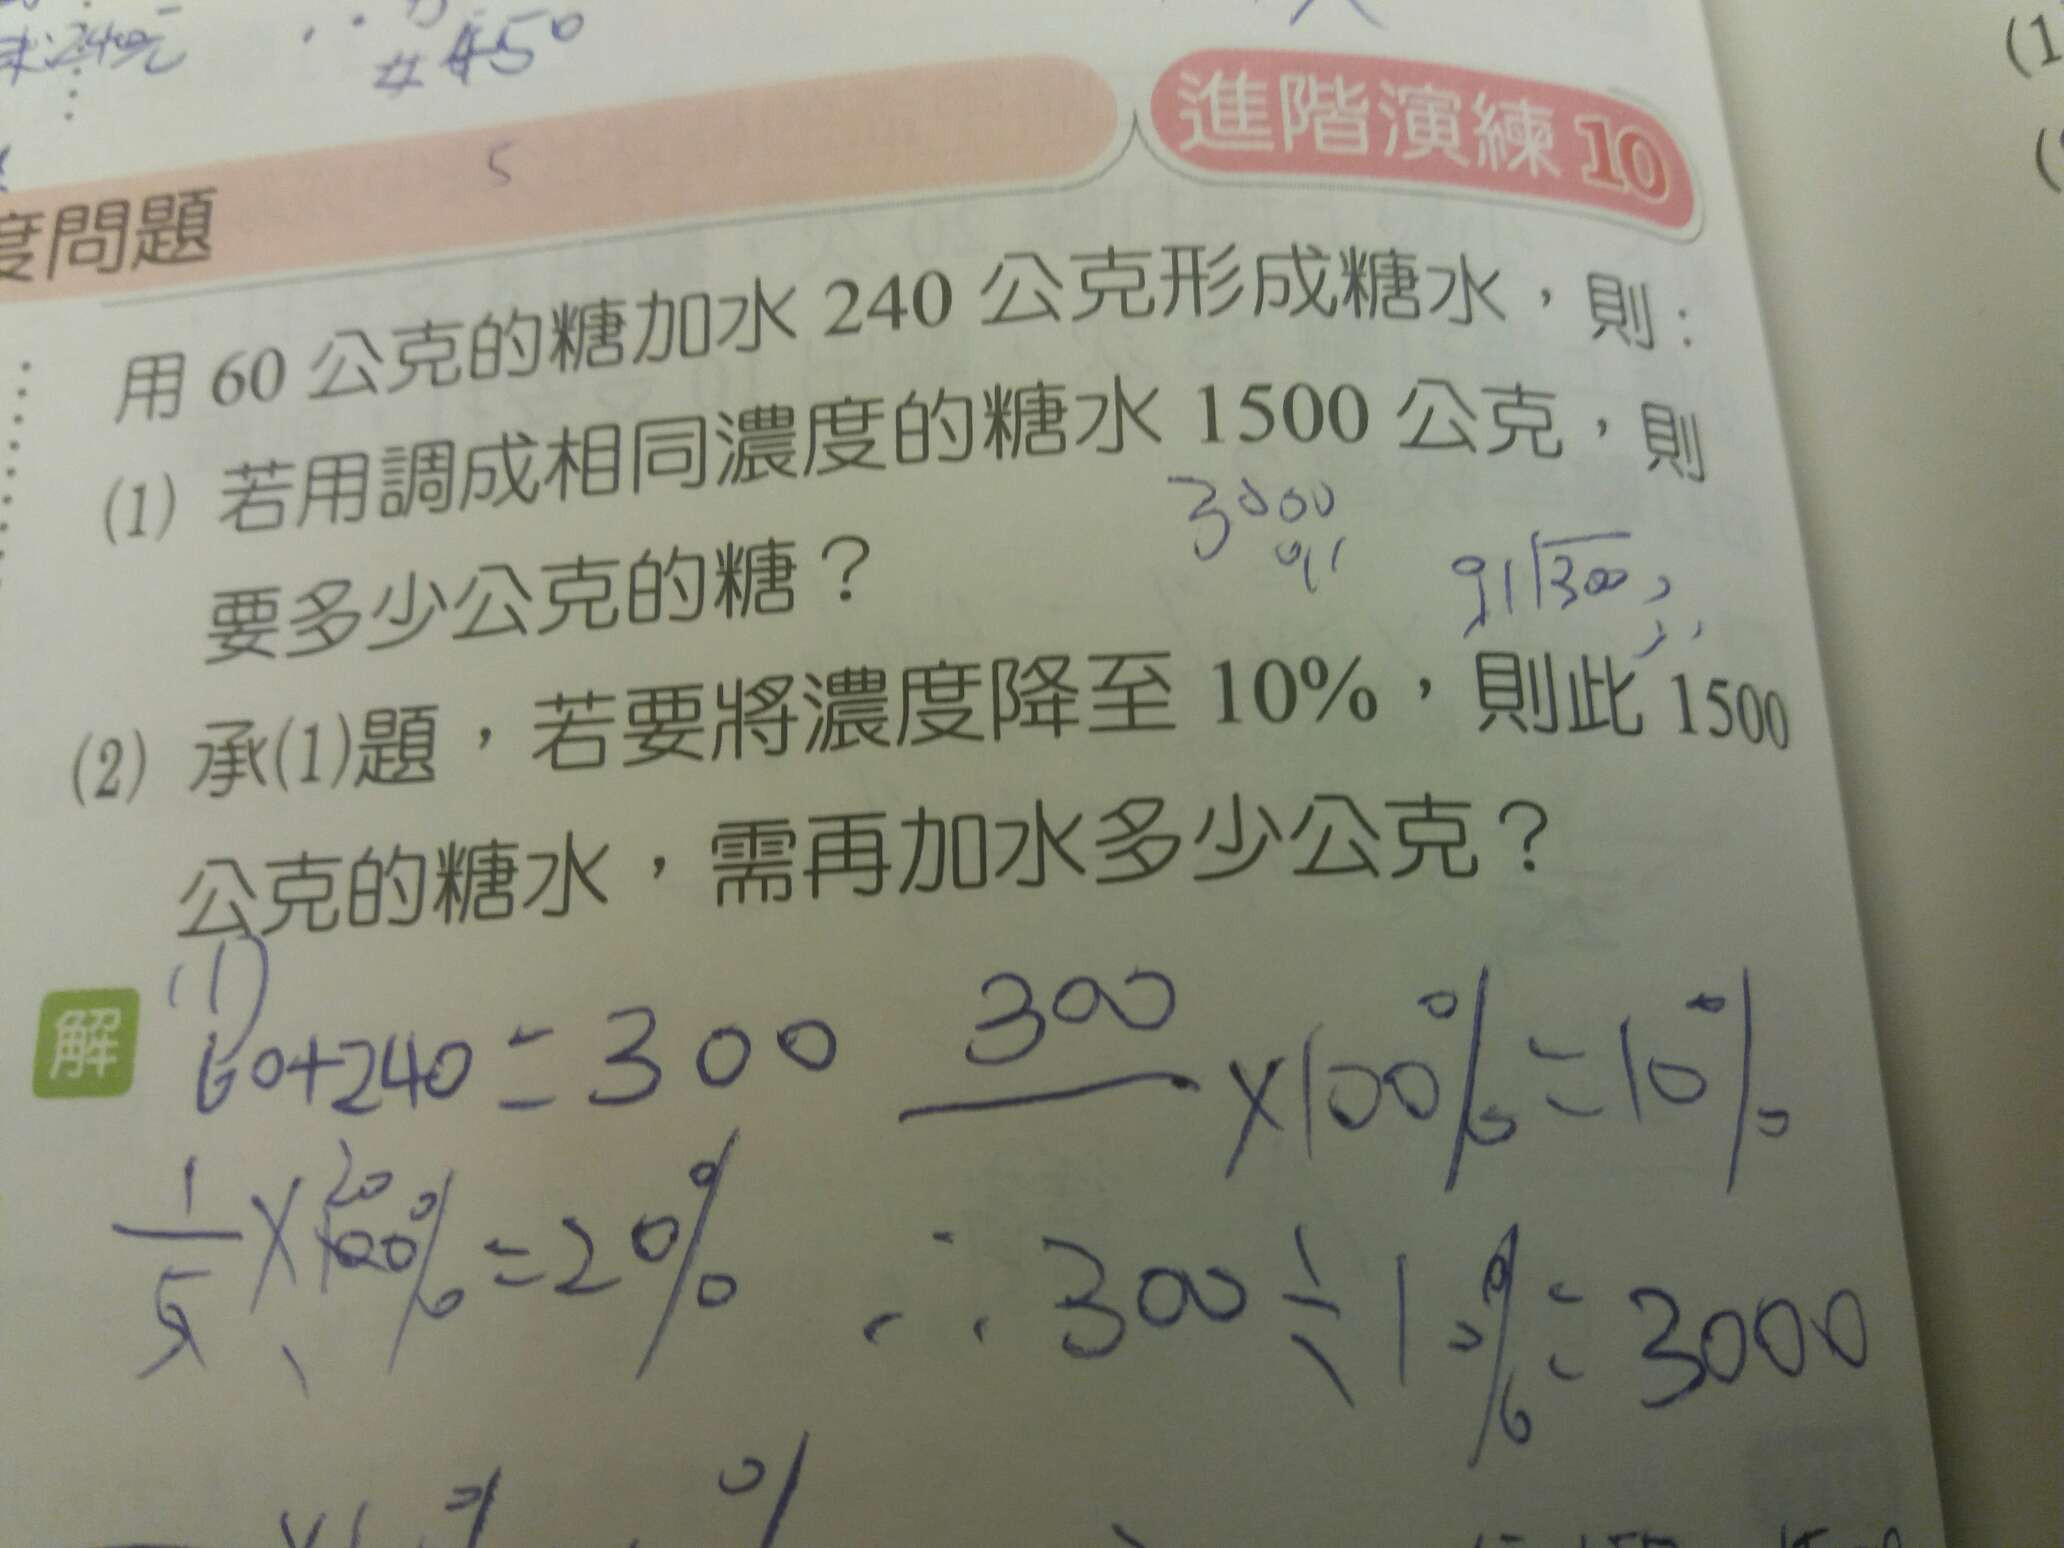 #450
進階演練 10
5
度問題
用 60 公克的糖加水 240 公克形成糖水，則：
(1) 若用調成相同濃度的糖水 1500 公克，則
要多少公克的糖？
3000
91
91 300
(2) 承(1)題，若要將濃度降至 10%，則此 1500
公克的糖水，需再加水多少公克？
解
(1)
60+240=300
300
×100%=10%
1/5×100%=20%
20
∴300÷10%=3000